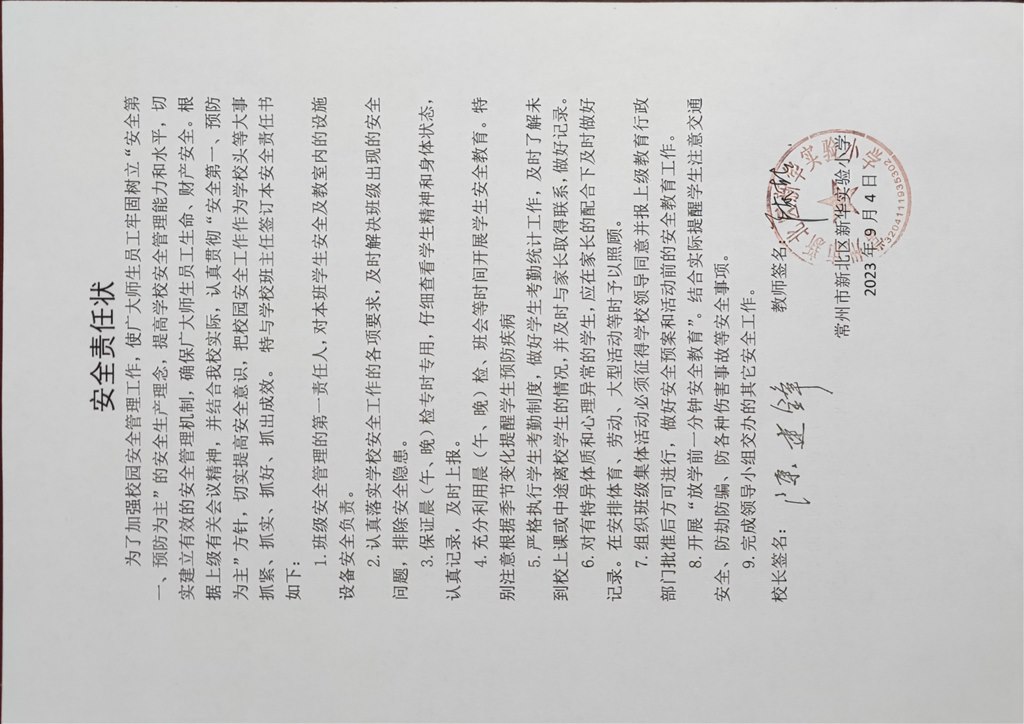 安全责任状
为了加强校园安全管理工作，使广大师生员工牢固树立“安全第
一、预防为主”的安全生产理念，提高学校安全管理能力和水平，切
实建立有效的安全管理机制，确保广大师生员工生命、财产安全。根
据上级有关会议精神，并结合我校实际，认真贯彻“安全第一、预防
为主”方针，切实提高安全意识，把校园安全工作作为学校头等大事
抓紧、抓实、抓好、抓出成效。特与学校班主任签订本安全责任书
如下：
1.班级安全管理的第一责任人，对本班学生安全及教室内的设施
设备安全负责。
2.认真落实学校安全工作的各项要求，及时解决班级出现的安全
问题，排除安全隐患。
3.保证晨（午、晚）检专时专用，仔细查看学生精神和身体状态，
认真记录，及时上报。
4.充分利用晨（午、晚）检、班会等时间开展学生安全教育。特
别注意根据季节变化提醒学生预防疾病
5.严格执行学生考勤制度，做好学生考勤统计工作，及时了解未
到校上课或中途离校学生的情况，并及时与家长取得联系，做好记录。
6.对有特异体质和心理异常的学生，应在家长的配合下及时做好
记录。在安排体育、劳动、大型活动等时予以照顾。
7.组织班级集体活动必须征得学校领导同意并报上级教育行政
部门批准后方可进行，做好安全预案和活动前的安全教育工作。
8.开展“放学前一分钟安全教育”。结合实际提醒学生注意交通
安全、防劫防骗、防各种伤害事故等安全事项。
9.完成领导小组交办的其它安全工作。
校长签名： 教师签名：
常州市新北区新华实验小学
2023年9月4日
3204111935302